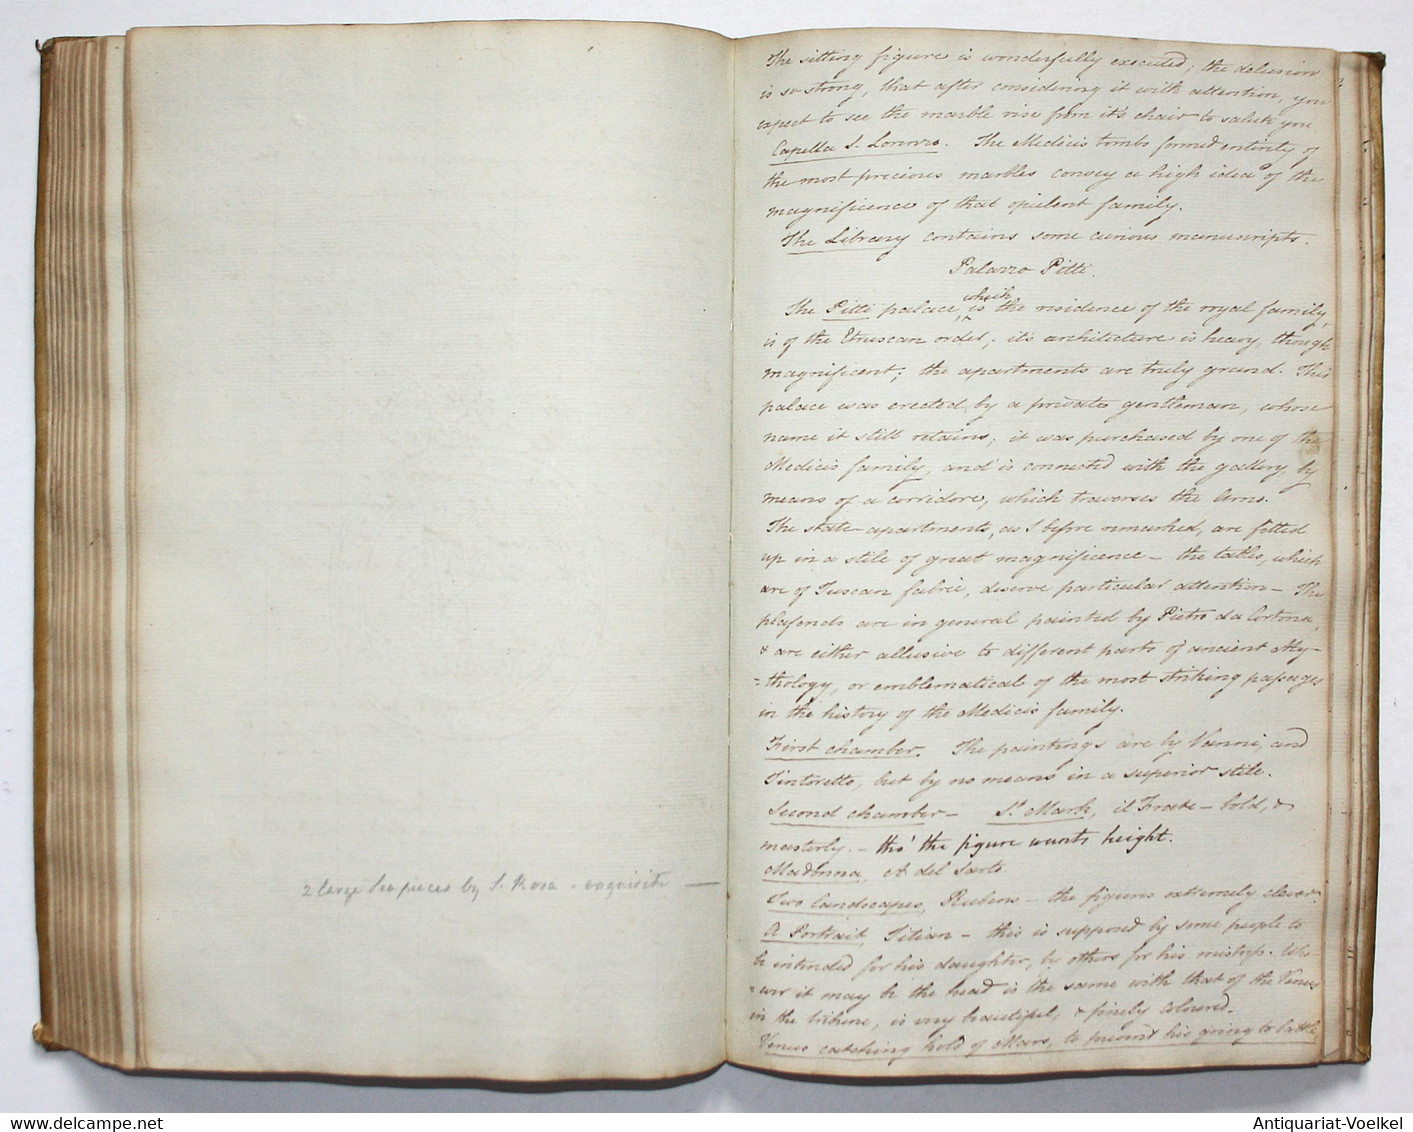 2 large Sea pieces by S. Rosa - exquisite —
The sitting figure is wonderfully executed; the delusion
is so strong, that after considering it with attention, you
expect to see the marble rise from it's chair to salute you
Capella S. Lorenzo. The Medicis tombs formed entirely of
the most precious marbles convey a high idea of the
magnificence of that opulent family.
The Library contains some curious manuscripts.
Palazzo Pitti.
The Pitti palace, which is the residence of the royal family,
is of the Etruscan order; it's architecture is heavy, though
magnificent; the apartments are truly grand. This
palace was erected by a private gentleman, whose
name it still retains; it was purchased by one of the
Medicis family, and is connected with the gallery, by
means of a corridore, which traverses the Arno.
The state-apartments, as I before remarked, are fitted
up in a stile of great magnificence - the tables, which
are of Tuscan fabric, deserve particular attention - The
plafonds are in general painted by Pietro da Cortona,
& are either allusive to different parts of ancient My-
=thology, or emblematical of the most striking passages
in the history of the Medicis family.
First chamber. The paintings are by Vanni, and
Tintoretto, but by no means in a superior stile.
Second chamber - St. Mark, il Frate - bold, &
masterly. - tho' the figure wants height.
Madonna, A del Sarto
Two landscapes, Rubens - the figures extremely clever.
A Portrait, Titian - this is supposed by some people to
be intended for his daughter, by others for his mistress. Who-
=ever it may be the head is the same with that of the Venus
in the tribune, is very beautiful, & finely coloured.
Venus catching hold of Mars, to prevent his going to battle
Antiquariat-Voelkel